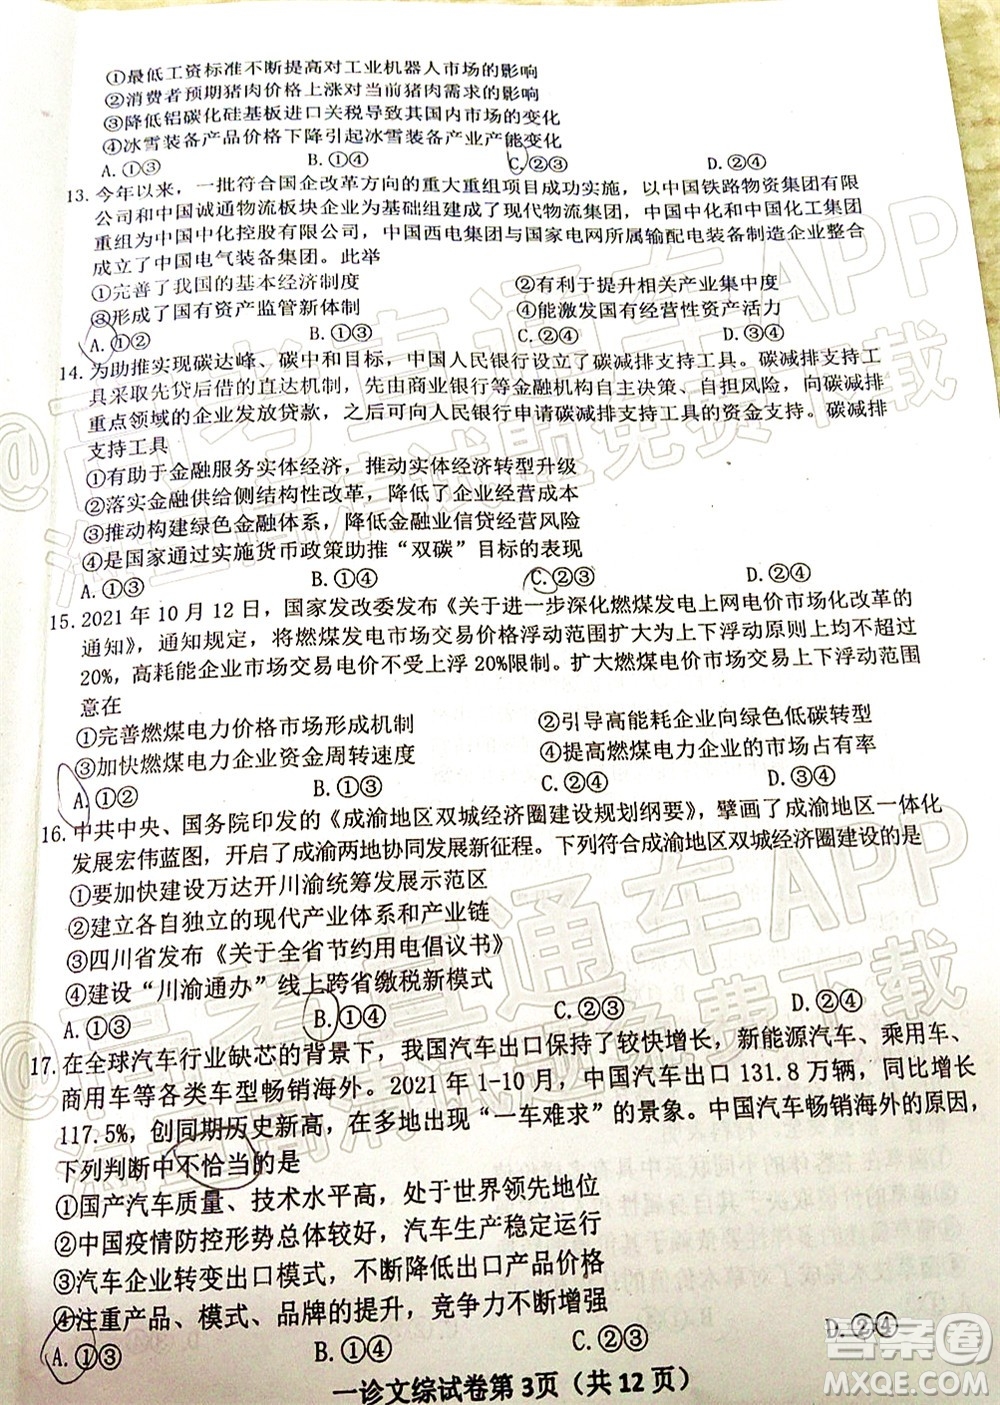 ①最低工资标准不断提高对工业机器人市场的影响
②消费者预期猪肉价格上涨对当前猪肉需求的影响
③降低铝碳化硅基板进口关税导致其国内市场的变化
④冰雪装备产品价格下降引起冰雪装备产业产能变化
A.①③ B.①④ C.②③ D.②④
13. 今年以来，一批符合国企改革方向的重大重组项目成功实施，以中国铁路物资集团有限
公司和中国诚通物流板块企业为基础组建成了现代物流集团，中国中化和中国化工集团
重组为中国中化控股有限公司，中国西电集团与国家电网所属输配电装备制造企业整合
成立了中国电气装备集团。此举
①完善了我国的基本经济制度 ②有利于提升相关产业集中度
③形成了国有资产监管新体制 ④能激发国有经营性资产活力
A.①② B.①③ C.②④ D.③④
14. 为助推实现碳达峰、碳中和目标，中国人民银行设立了碳减排支持工具。碳减排支持工
具采取先贷后借的直达机制，先由商业银行等金融机构自主决策、自担风险，向碳减排
重点领域的企业发放贷款，之后可向人民银行申请碳减排支持工具的资金支持。碳减排
支持工具
①有助于金融服务实体经济，推动实体经济转型升级
②落实金融供给侧结构性改革，降低了企业经营成本
③推动构建绿色金融体系，降低了金融业信贷经营风险
④是国家通过实施货币政策助推“双碳”目标的表现
A.①③ B.①④ C.②③ D.②④
15. 2021 年 10 月 12 日，国家发改委发布《关于进一步深化燃煤发电上网电价市场化改革的
通知》，通知规定，将燃煤发电市场交易价格浮动范围扩大为上下浮动原则上均不超过
20%，高耗能企业市场交易电价不受上浮 20%限制。扩大燃煤电价市场交易上下浮动范围
意在
①完善燃煤电力价格市场形成机制 ②引导高能耗企业向绿色低碳转型
③加快燃煤电力企业资金周转速度 ④提高燃煤电力企业的市场占有率
A.①② B.①③ C.②④ D.③④
16. 中共中央、国务院印发的《成渝地区双城经济圈建设规划纲要》，擘画了成渝地区一体化
发展宏伟蓝图，开启了成渝两地协同发展新征程。下列符合成渝地区双城经济圈建设的是
①要加快建设万达开川渝统筹发展示范区
②建立各自独立的现代产业体系和产业链
③四川省发布《关于全省节约用电倡议书》
④建设“川渝通办”线上跨省缴税新模式
A.①③ B.①④ C.②③ D.②④
17. 在全球汽车行业缺芯的背景下，我国汽车出口保持了较快增长，新能源汽车、乘用车、
商用车等各类车型畅销海外。2021 年 1-10 月，中国汽车出口 131.8 万辆，同比增长
117.5%，创同期历史新高，在多地出现“一车难求”的景象。中国汽车畅销海外的原因，
下列判断中不恰当的是
①国产汽车质量、技术水平高，处于世界领先地位
②中国疫情防控形势总体较好，汽车生产稳定运行
③汽车企业转变出口模式，不断降低出口产品价格
④注重产品、模式、品牌的提升，竞争力不断增强
A.①③ B.①④ C.②③ D.②④
一诊文综试卷第 3页（共 12 页）
@高考直通车APP
海量高清试题免费下载
@高考直通车APP
海量高清试题免费下载
答案圈
MXQE.COM